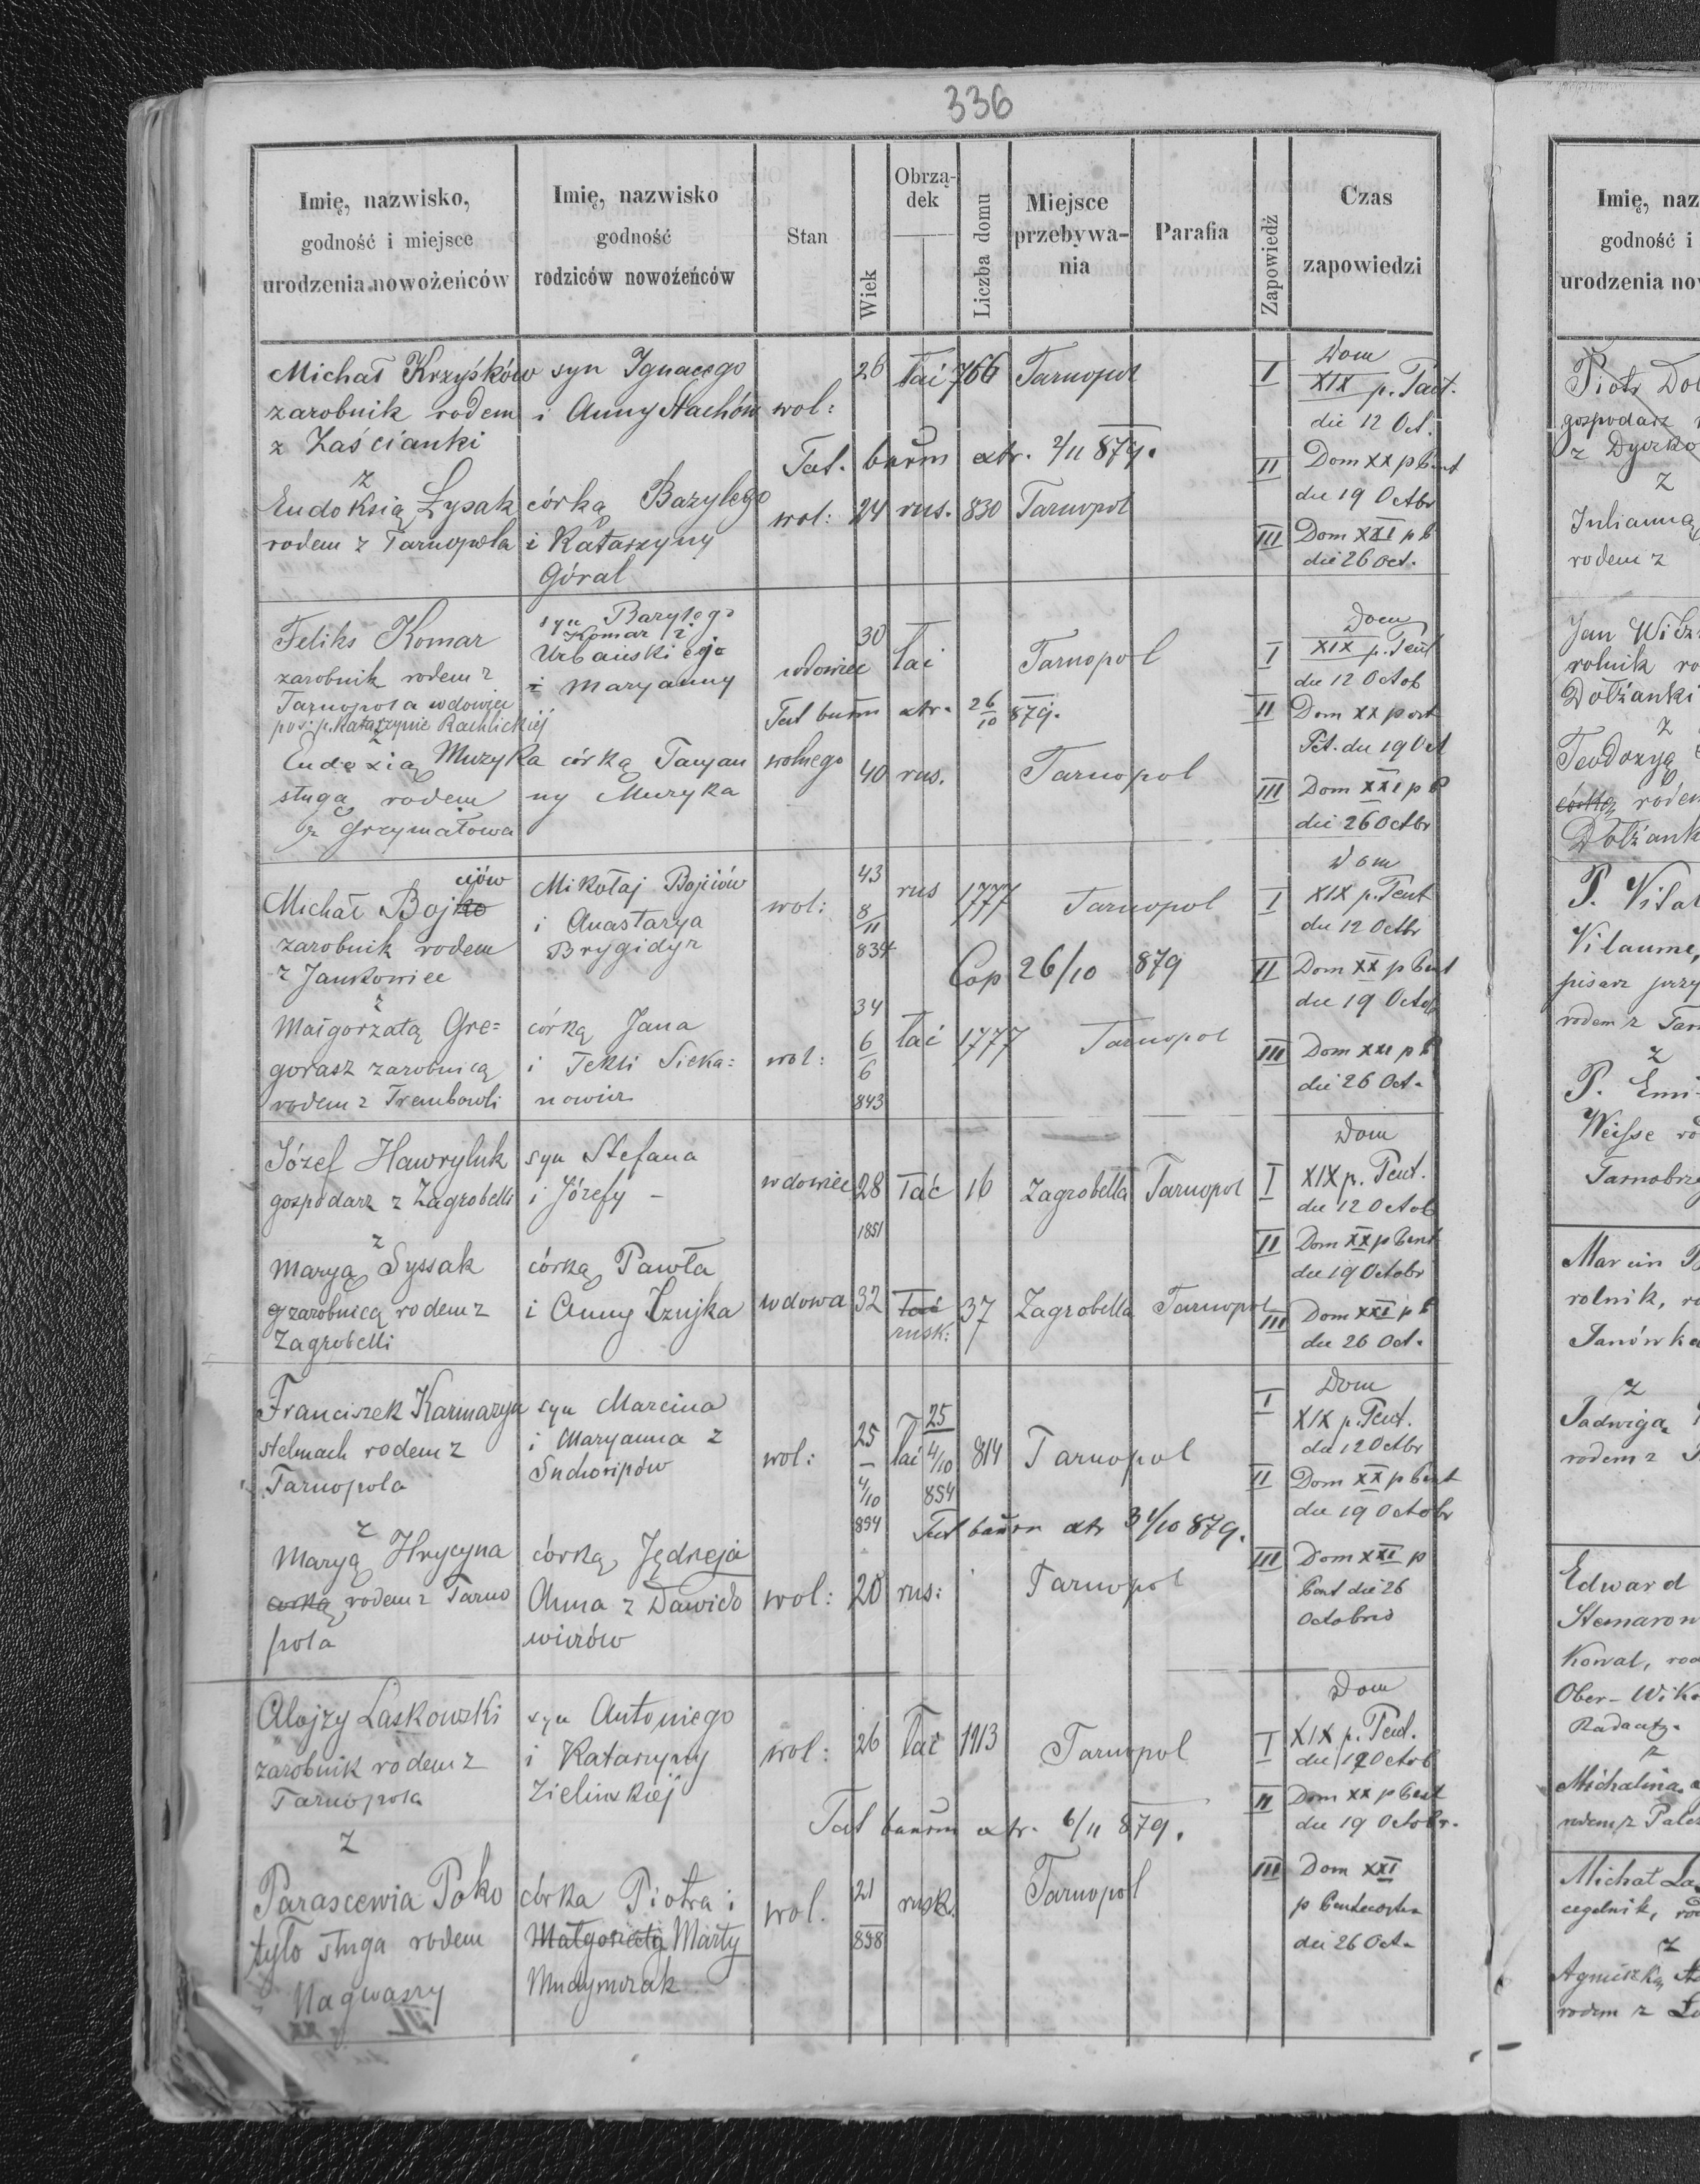 336
Imię, nazwisko,
godność i miejsce
urodzenia nowożeńców
Imię, nazwisko
godność
rodziców nowożeńców
Stan
Wiek
Obrzą-
dek
Liczba domu
Miejsce
przebywa-
nia
Parafia
Zapowiedź
Czas
zapowiedzi
Michał Krzyśków syn Ignacego 26 łać 766 Tarnopol I Dom
XIX p. Pent.
zarobnik rodem i Anny Stachów wol: die 12 Oct.
z Zaścianki
Tat. baŭrn atr. 2/11 879. II Dom XX p Pent
z
Eudoksią Łysak córką Bazylego wol: 24 rus. 830 Tarnopol die 19 Octbr
rodem z Tarnopola i Katarzyny III Dom XXI p P
Góral die 26 Oct.
Feliks Komar syn Bazylego
Komar i
Urbańskiego 30 Dom
zarobnik rodem z i Maryanny wdowiec łać Tarnopol I XIX p. Pent
Tarnopola wdowiec die 12 Octob
poś: p. Katarzynie Rachlickiéj Tat baŭrn atr. 26/10 879. II Dom XX post
z Pt. die 19 Oct
Eudoxią Muzyka córką Tacyan wolnego 40 rus. Tarnopol
sługą rodem ny Muzyka III Dom XXI p P
z Grzymałowa die 26 Octbr
Michał Bojko ciów Mikołaj Bojciów wol: 43 rus 1777 Tarnopol I Dom
XIX p. Pent
i Anastazya 8/11 die 12 Octbr
zarobnik rodem Brygidyr 834
z Jankowiec Cop 26/10 879 II Dom XX p Pent
z die 19 Octob
Małgorzatą Gre= córką Jana 34 łać 1777 Tarnopol
gorasz zarobnicą i Tekli Sieka= wol: 6/6 III Dom XXI p P
rodem z Trembowli nowicz 843 die 26 Oct.
Józef Hawryluk syn Stefana wdowiec 28 łać 16 Zagrobella Tarnopol I Dom
XIX p. Pent.
gospodarz z Zagrobelli i Józefy - 1851 die 12 Octob
z II Dom XX p Pent
Maryą Syssak córką Pawła die 19 Octobr
zarobnicą rodem z i Anny wdowa 32 łać 37 Zagrobella Tarnopol III Dom XXI p P
Zagrobelli rusk: die 26 Oct.
Franciszek Karmazyn syn Marcina Dom
I XIX p. Pent.
stelmach rodem z i Maryanna z wol: 25 łać 25 814 Tarnopol die 12 Octbr
Tarnopola 4/10 4/10 II Dom XX p Pent
854 854 die 19 Octobr
z Tat baŭrn atr 31/10 879.
Maryą Hrycyna córką Jędrzeja III Dom XXI p
córką rodem z Tarno Anna z Dawido wol: 20 rus: Tarnopol Pent die 26
pola wiczów Octobris
Alojzy Laskowski syn Antoniego wol: 26 łać 1913 Tarnopol I Dom
XIX p. Pent.
zarobnik rodem z i Katarzyny die 12 Octob
Tarnopola Zielinskiej II Dom XX p Pent
Tat baŭrn atr. 6/11 879. die 19 Octobr.
z
Parascewia Poko córka Piotra i wol. 21 rusk. Tarnopol III Dom XXI
tyło sługa rodem Małgorzaty Marty 858 p Pentecostn
die 26 Oct.
z Nagwasry
Imię, naz
godność i
urodzenia no
Piotr Doł
gospodarz
z Dyczko
z
Julianną
rodem z
Jan Wilz
rolnik ro
Dołżanki
z
Teodozyą
córką rodem
Dołżank
P. Vital
Vilaume,
pisarz przy
rodem z Tar
z
P. Emi-
Weisse ro
Tarnobrze
Marcin
rolnik, ro
Janówka
z
Jadwiga
rodem z
Edward
Stemaron
Kowal, rod
Ober-Wiko
Radautz.
z
Michalina
rodem z Palcz
Michał La
cegelnik, rod
z
Agnieszką
rodem z